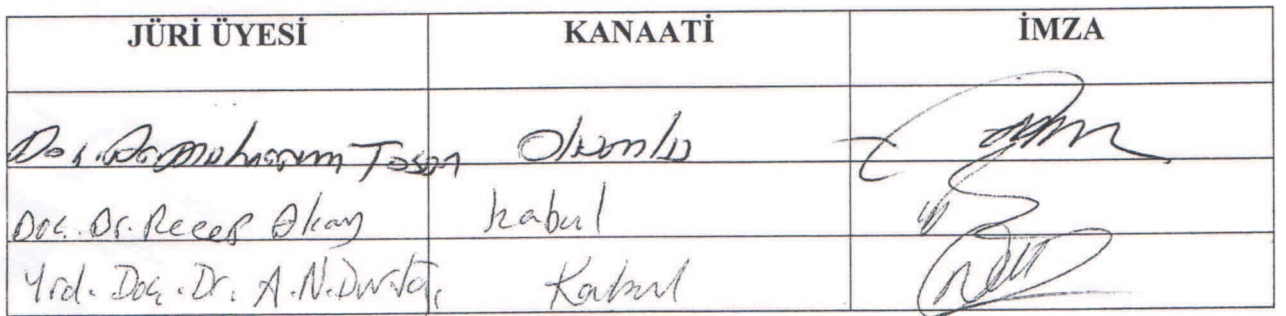 JÜRİ ÜYESİ KANAATİ İMZA
Doç. Dr. Muharrem Tosun Olumlu
Doç. Dr. Recep Akay kabul
Yrd. Doç. Dr. A.N. Kabul